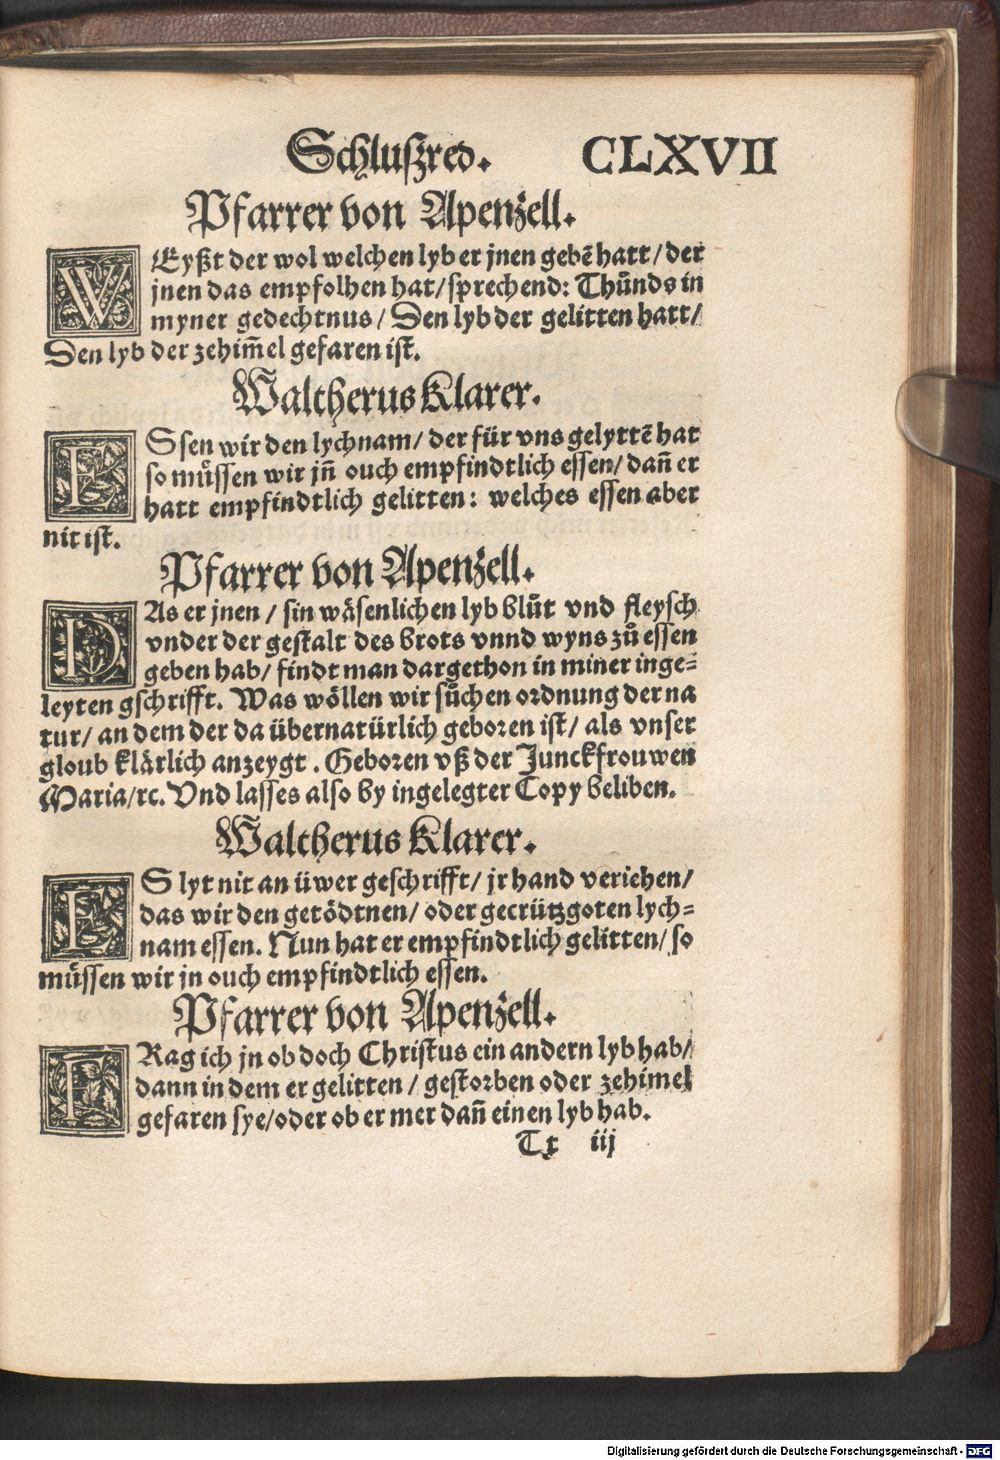 Schluſzred. CLXVII
Pfarrer von Apenzell.
WEyßt der wol welchen lyb er jnen gebē hatt/ der
jnen das empfolhen hat/ sprechend: Thůnds in
myner gedechtnus/ Den lyb der gelitten hatt/
Den lyb der zehim̄el gefaren ist.
Waltherus Klarer.
ESsen wir den lychnam/ der für vns gelyttē hat
so muͤssen wir jn̄ ouch empfindtlich essen/ dan̄ er
hatt empfindtlich gelitten: welches essen aber
nit ist.
Pfarrer von Apenzell.
DAs er jnen/ sin wäsenlichen lyb blůt vnd fleysch
vnder der gestalt des brots vnnd wyns zů essen
geben hab/ findt man dargethon in miner inge=
leyten gschrifft. Was wöllen wir sůchen ordnung der na
tur/ an dem der da übernatürlich geboren ist/ als vnser
gloub klärlich anzeygt. Geboren vß der Junckfrouwen
Maria/ ꝛc. Vnd lasses also by ingelegter Copy beliben.
Waltherus Klarer.
ES lyt nit an üwer geschrifft/ jr hand veriehen/
das wir den getödtnen/ oder gecrützgoten lych=
nam essen. Nun hat er empfindtlich gelitten/ so
muͤssen wir jn ouch empfindtlich essen.
Pfarrer von Apenzell.
FRag ich jn ob doch Christus ein andern lyb hab/
dann in dem er gelitten/ gestorben oder zehimel
gefaren sye/ oder ob er mer dan̄ einen lyb hab.
Tt iij
Digitalisierung gefördert durch die Deutsche Forschungsgemeinschaft - DFG